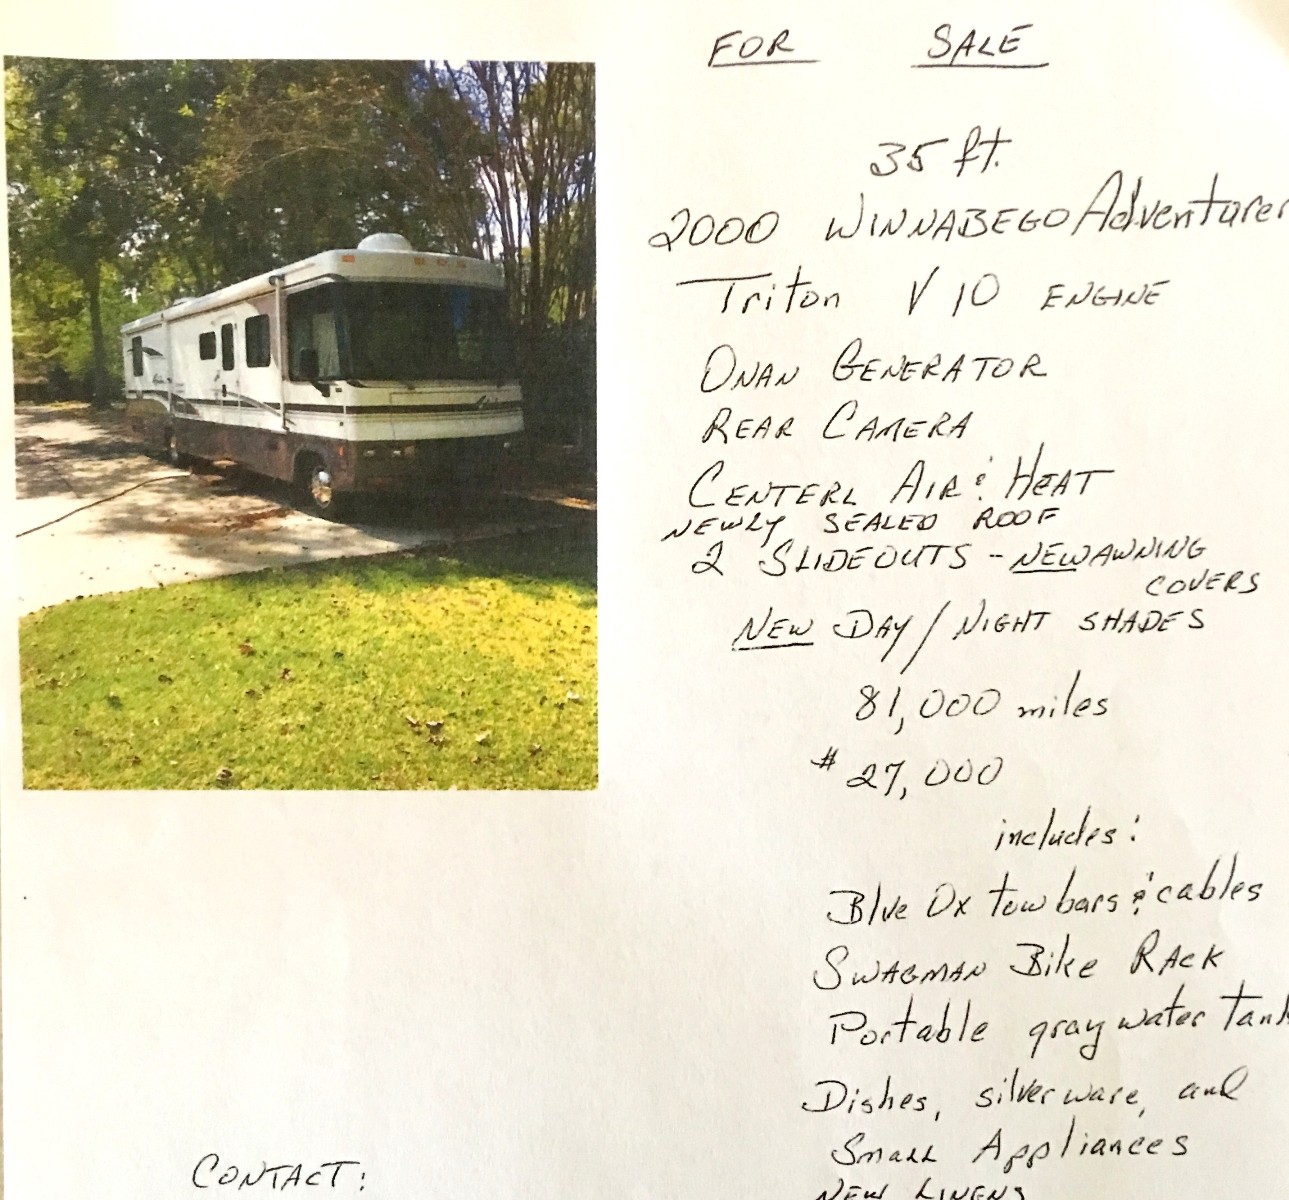 FOR SALE
35 ft.
2000 WINNABEGO Adventurer
Triton V10 ENGINE
ONAN GENERATOR
REAR CAMERA
CENTERL AIR & HEAT
NEWLY SEALED ROOF
2 SLIDEOUTS - NEW AWNING
COVERS
NEW DAY / NIGHT SHADES
81,000 miles
# 27,000
includes:
Blue Ox tow bars & cables
SWAGMAN Bike RACK
Portable gray water tank
Dishes, silverware, and
Small Appliances
NEW LINENS
CONTACT: